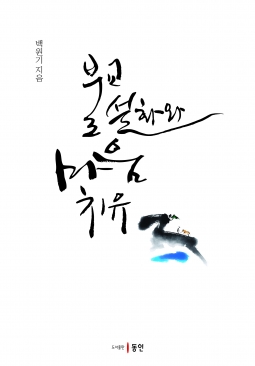 백원기 지음
불교
설화와
마음
치유
도서출판 동인